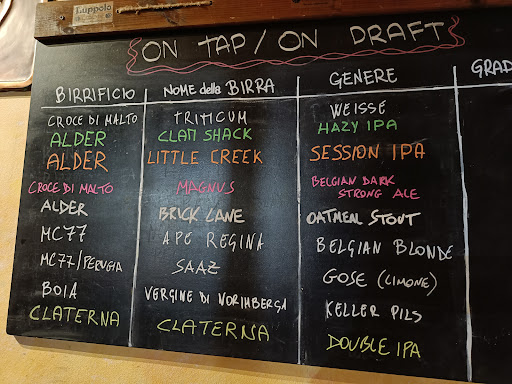 Luppolo
ON TAP / ON DRAFT
BIRRIFICIO NOME della BIRRA GENERE GRAD
CROCE DI MALTO TRITICUM WEISSE
ALDER CLAN SHACK HAZY IPA
ALDER LITTLE CREEK SESSION IPA
CROCE DI MALTO MAGNUS BELGIAN DARK
STRONG ALE
ALDER BRICK LANE OATMEAL STOUT
MC77 APE REGINA BELGIAN BLONDE
MC77/PERUGIA SAAZ GOSE (LIMONE)
BOIA VERGINE DI NORIMBERGA KELLER PILS
CLATERNA CLATERNA DOUBLE IPA